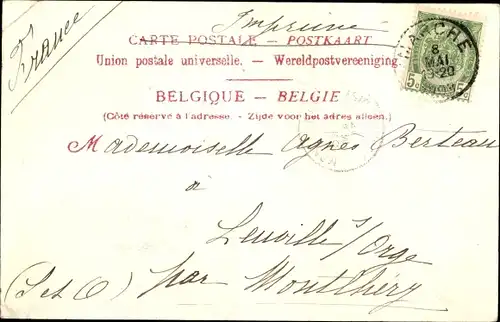 Imprimé
France
CARTE POSTALE – POSTKAART
Union postale universelle. – Wereldpostvereeniging.
BELGIQUE – BELGIE
(Côté réservé à l'adresse. – Zijde voor het adres alleen.)
MARCHE
8
MAI
5
Mademoiselle Agnès Berteau
à
Leuville s/ Orge
par Montlhéry
(S et O)